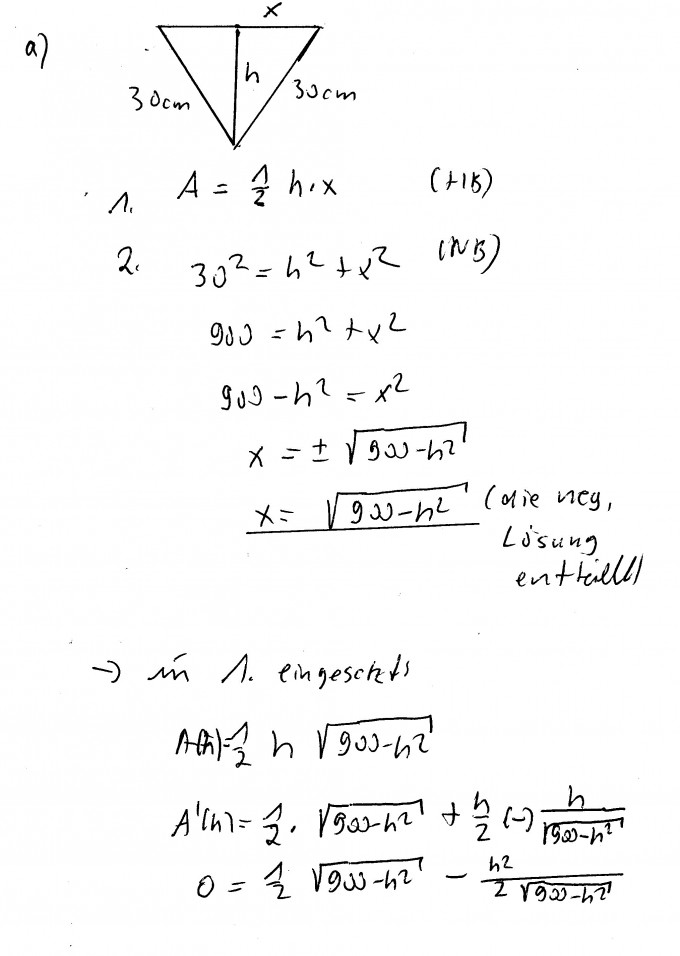 a)
x
h
30cm
30cm
1. A = 1/2 h·x (HB)
2. 30² = h² + x² (NB)
900 = h² + x²
900 - h² = x²
x = ± √(900-h²)
x = √(900-h²) (die neg.
Lösung
entfällt)
→ in 1. eingesetzt
A(h) = 1/2 h √(900-h²)
A'(h) = 1/2 · √(900-h²) + h/2 (-) h/√(900-h²)
0 = 1/2 √(900-h²) - h²/(2 √(900-h²))